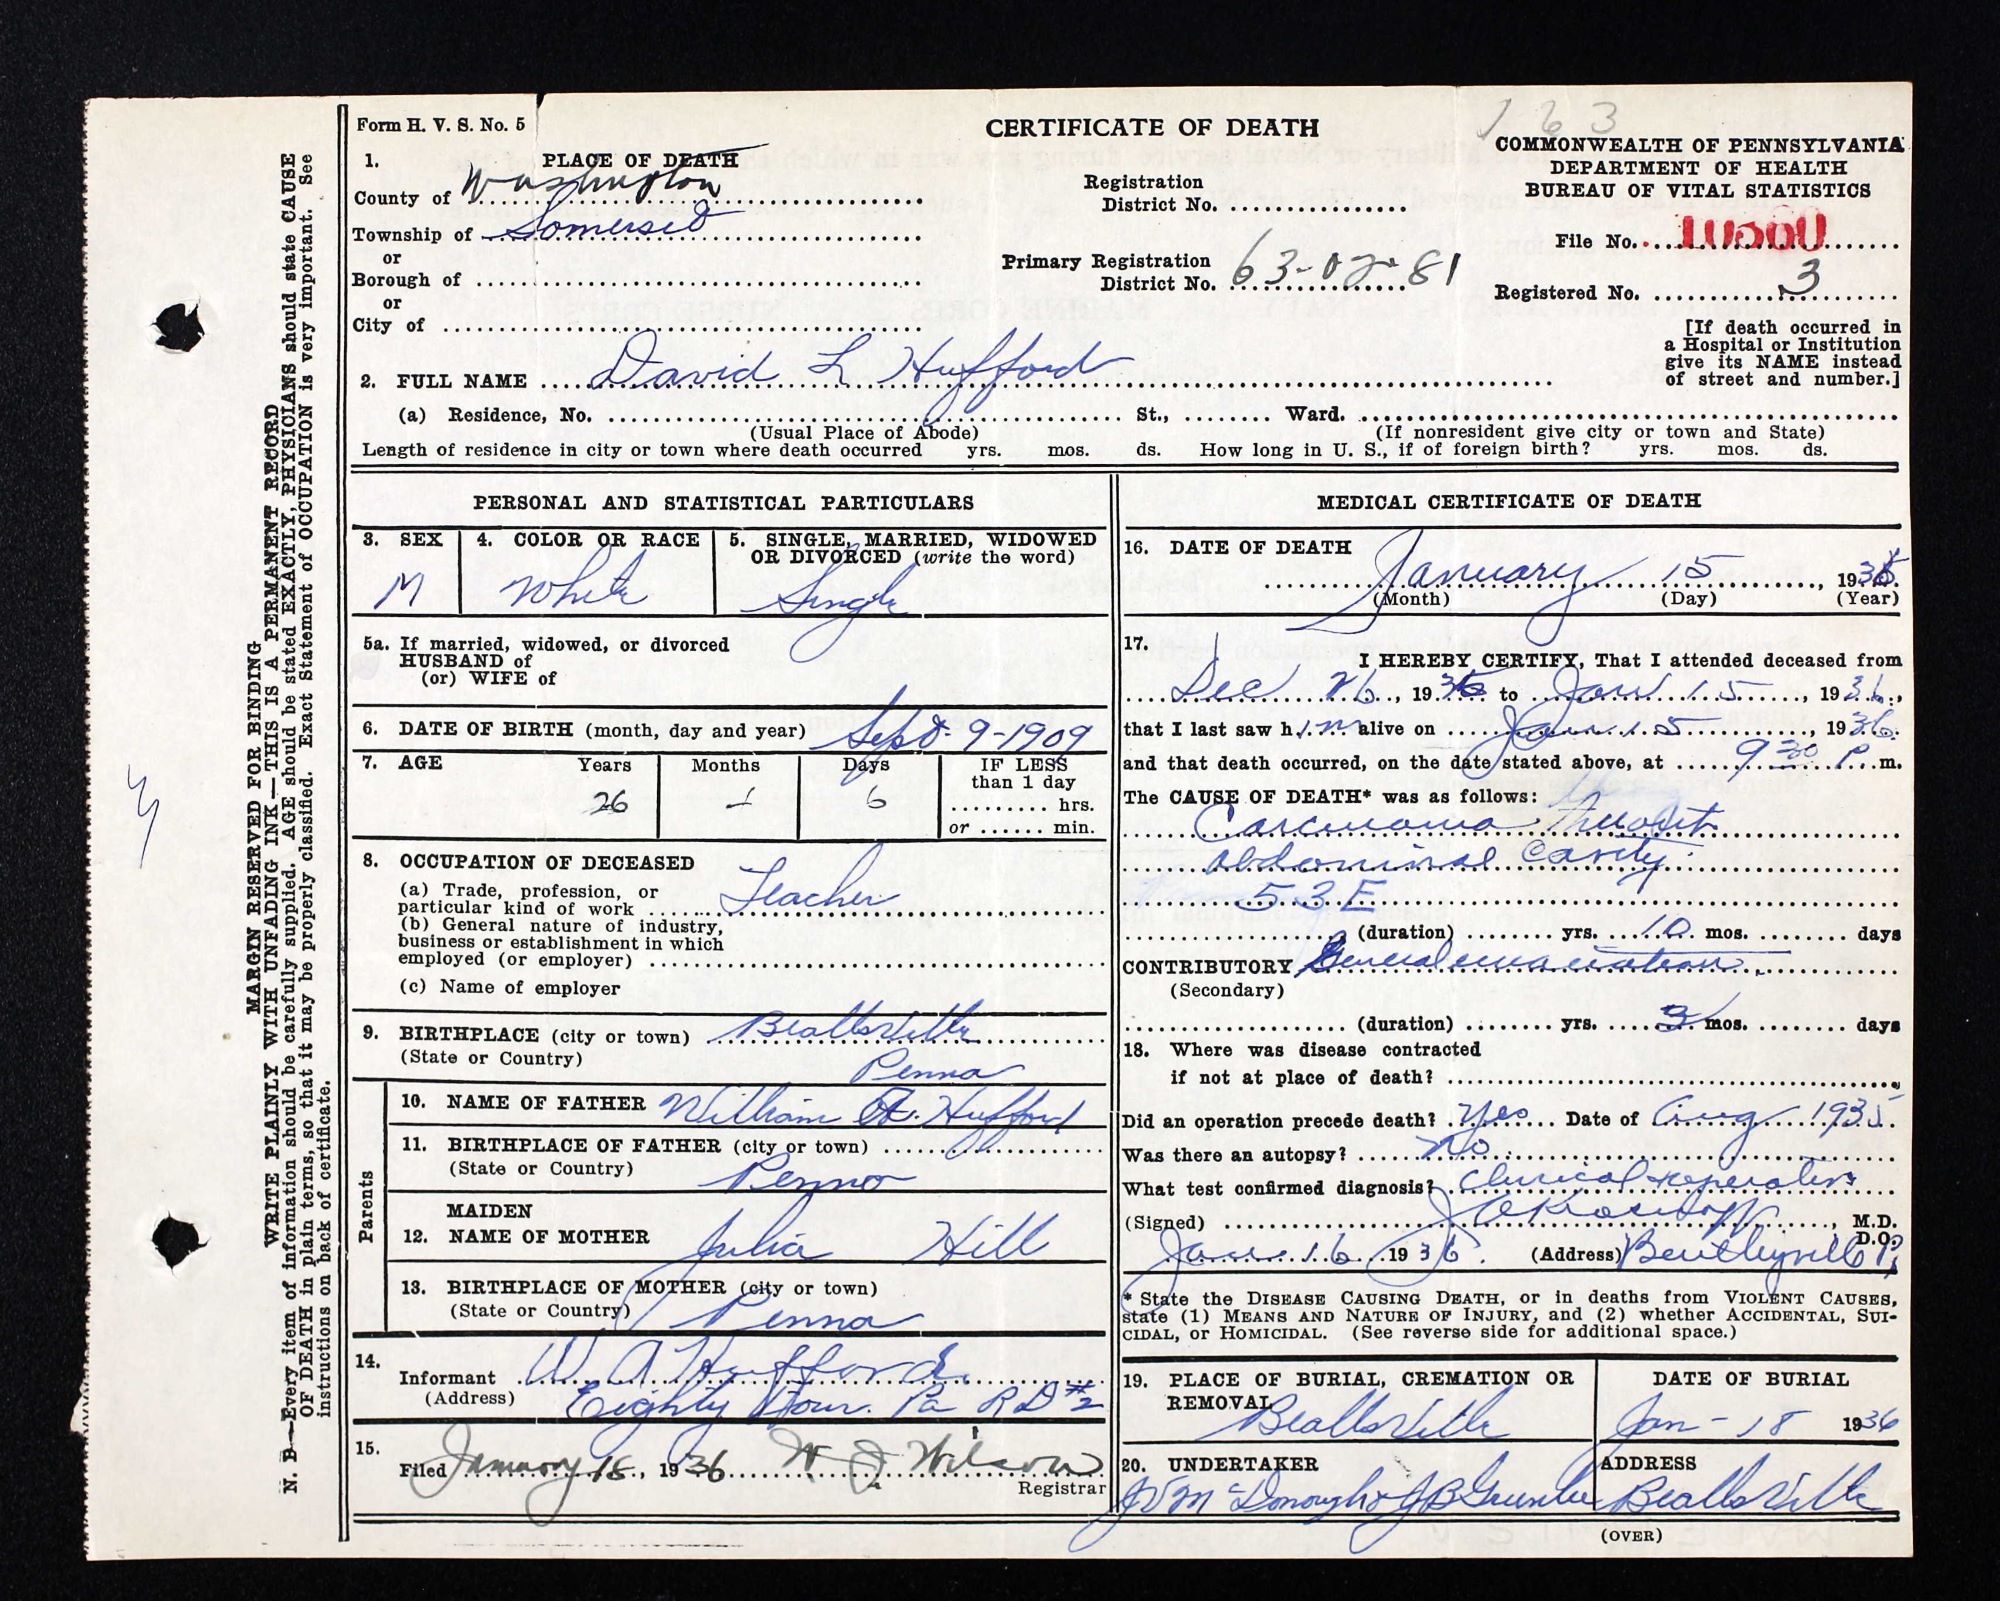 Form H. V. S. No. 5
CERTIFICATE OF DEATH
163
COMMONWEALTH OF PENNSYLVANIA
DEPARTMENT OF HEALTH
BUREAU OF VITAL STATISTICS
1. PLACE OF DEATH
County of Washington
Township of Somerset
or
Borough of
or
City of
Registration
District No.
Primary Registration
District No. 63-02-81
File No.
Registered No. 3
[If death occurred in
a Hospital or Institution
give its NAME instead
of street and number.]
2. FULL NAME David L Hufford
(a) Residence, No. St., Ward.
(Usual Place of Abode) (If nonresident give city or town and State)
Length of residence in city or town where death occurred yrs. mos. ds. How long in U. S., if of foreign birth? yrs. mos. ds.
PERSONAL AND STATISTICAL PARTICULARS
3. SEX
M
4. COLOR OR RACE
White
5. SINGLE, MARRIED, WIDOWED
OR DIVORCED (write the word)
Single
5a. If married, widowed, or divorced
HUSBAND of
(or) WIFE of
6. DATE OF BIRTH (month, day and year) Sept- 9-1909
7. AGE Years Months Days IF LESS
than 1 day
hrs.
or min.
26 6
8. OCCUPATION OF DECEASED
(a) Trade, profession, or
particular kind of work Teacher
(b) General nature of industry,
business or establishment in which
employed (or employer)
(c) Name of employer
9. BIRTHPLACE (city or town) Beallsville
(State or Country) Penna
Parents
10. NAME OF FATHER William A. Hufford
11. BIRTHPLACE OF FATHER (city or town)
(State or Country) Penna
12. MAIDEN
NAME OF MOTHER Julia Hill
13. BIRTHPLACE OF MOTHER (city or town)
(State or Country) Penna
14.
Informant W A Hufford
(Address) Eighty Four. Pa RD #2
15.
Filed January 18, 1936 W J Wilson
Registrar
MEDICAL CERTIFICATE OF DEATH
16. DATE OF DEATH
January 15, 1936
(Month) (Day) (Year)
17.
I HEREBY CERTIFY, That I attended deceased from
Dec 26, 1935 to Jan 15, 1936,
that I last saw him alive on Jan 15, 1936.
and that death occurred, on the date stated above, at 9 30 P.m.
The CAUSE OF DEATH* was as follows:
Carcinoma
abdominal cavity
53E
(duration) yrs. 10 mos. days
CONTRIBUTORY General emaciation
(Secondary)
(duration) yrs. 3 mos. days
18. Where was disease contracted
if not at place of death?
Did an operation precede death? Yes Date of Aug 1935
Was there an autopsy? No
What test confirmed diagnosis? Clinical & operation
(Signed) M.D.
D.O.
Jan 16 1936. (Address) Bentleyville Pa
* State the DISEASE CAUSING DEATH, or in deaths from VIOLENT CAUSES,
state (1) MEANS AND NATURE OF INJURY, and (2) whether ACCIDENTAL, SUI-
CIDAL, or HOMICIDAL. (See reverse side for additional space.)
19. PLACE OF BURIAL, CREMATION OR
REMOVAL
Beallsville
DATE OF BURIAL
Jan - 18 1936
20. UNDERTAKER
J V McDonough & J B Greenlee
ADDRESS
Beallsville
(OVER)
MARGIN RESERVED FOR BINDING
WRITE PLAINLY WITH UNFADING INK—THIS IS A PERMANENT RECORD
N. B.—Every item of information should be carefully supplied. AGE should be stated EXACTLY, PHYSICIANS should state CAUSE
OF DEATH in plain terms, so that it may be properly classified. Exact Statement of OCCUPATION is very important. See
instructions on back of certificate.